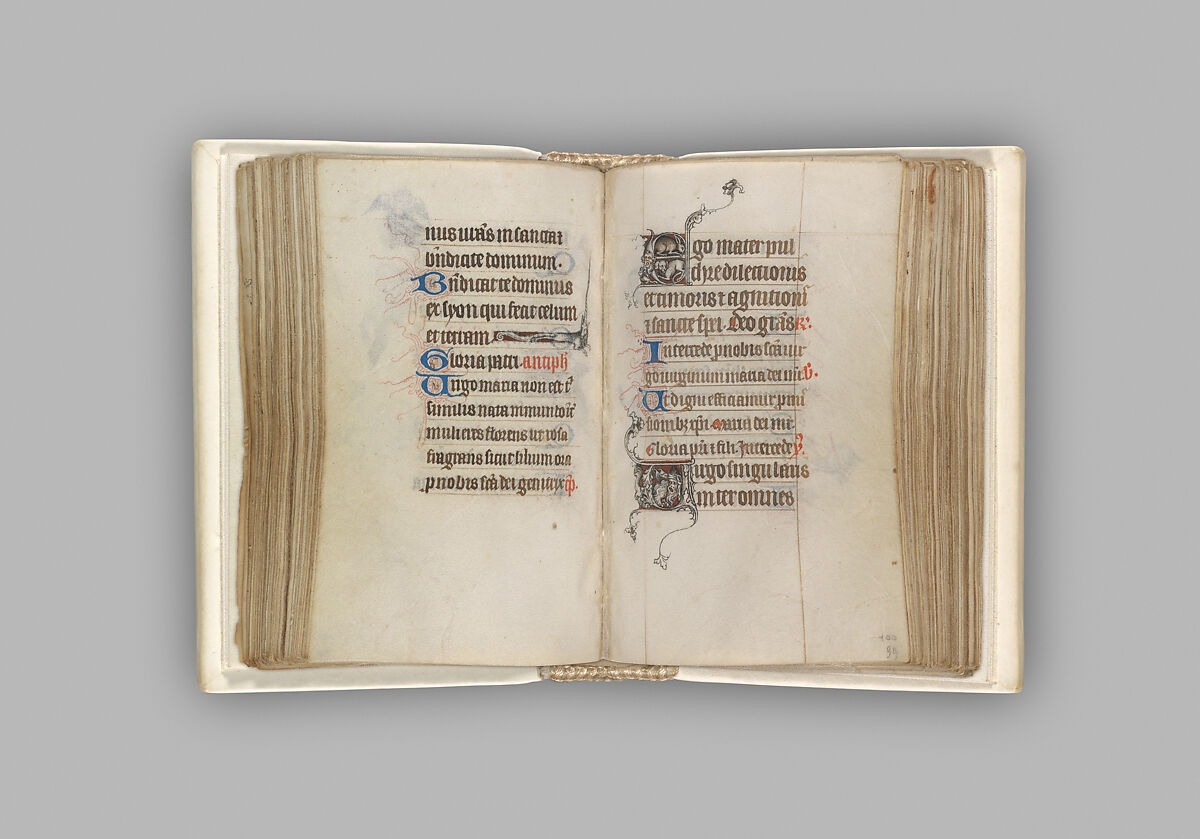 nus vr̃as in sancta ⁊
bñdicite dominum.
Bñdicat te dominus
ex syon qui fecit celum
et terram
Gloria patri. antiph̃
Uirgo maria non est t̃
similis nata in mundo ĩt̃
mulieres florens ut rosa
fragrans sicut lilium ora
p nobis sc̃a dei genitrix
Ego mater pul
chre dilectionis
et timoris ⁊ agnitionĩ
⁊ sancte sp̃ei. Deo gr̃as R̷.
Intercede p nobis sc̃a uir
go uirginum maria dei mr̃. V̷.
Ut digni efficiamur p̃mi
ssiomb̃z xp̃i. maria dei mr̃.
Gloria pr̃i ⁊ fili. Intercede V̷.
Uirgo singularis
inter omnes
100
99